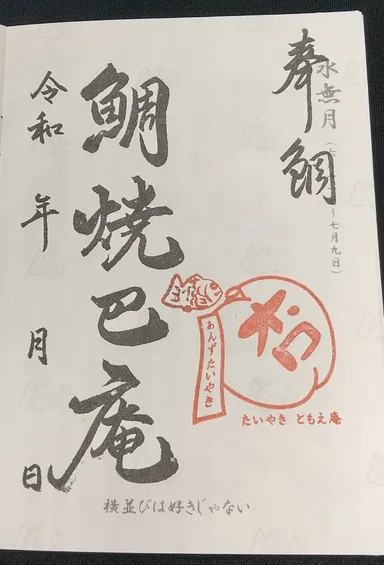 奉鯛
水無月
～七月九日）
鯛焼巴庵
令和 年 月 日
あんずたいやき
たいやき ともえ庵
横並びは好きじゃない